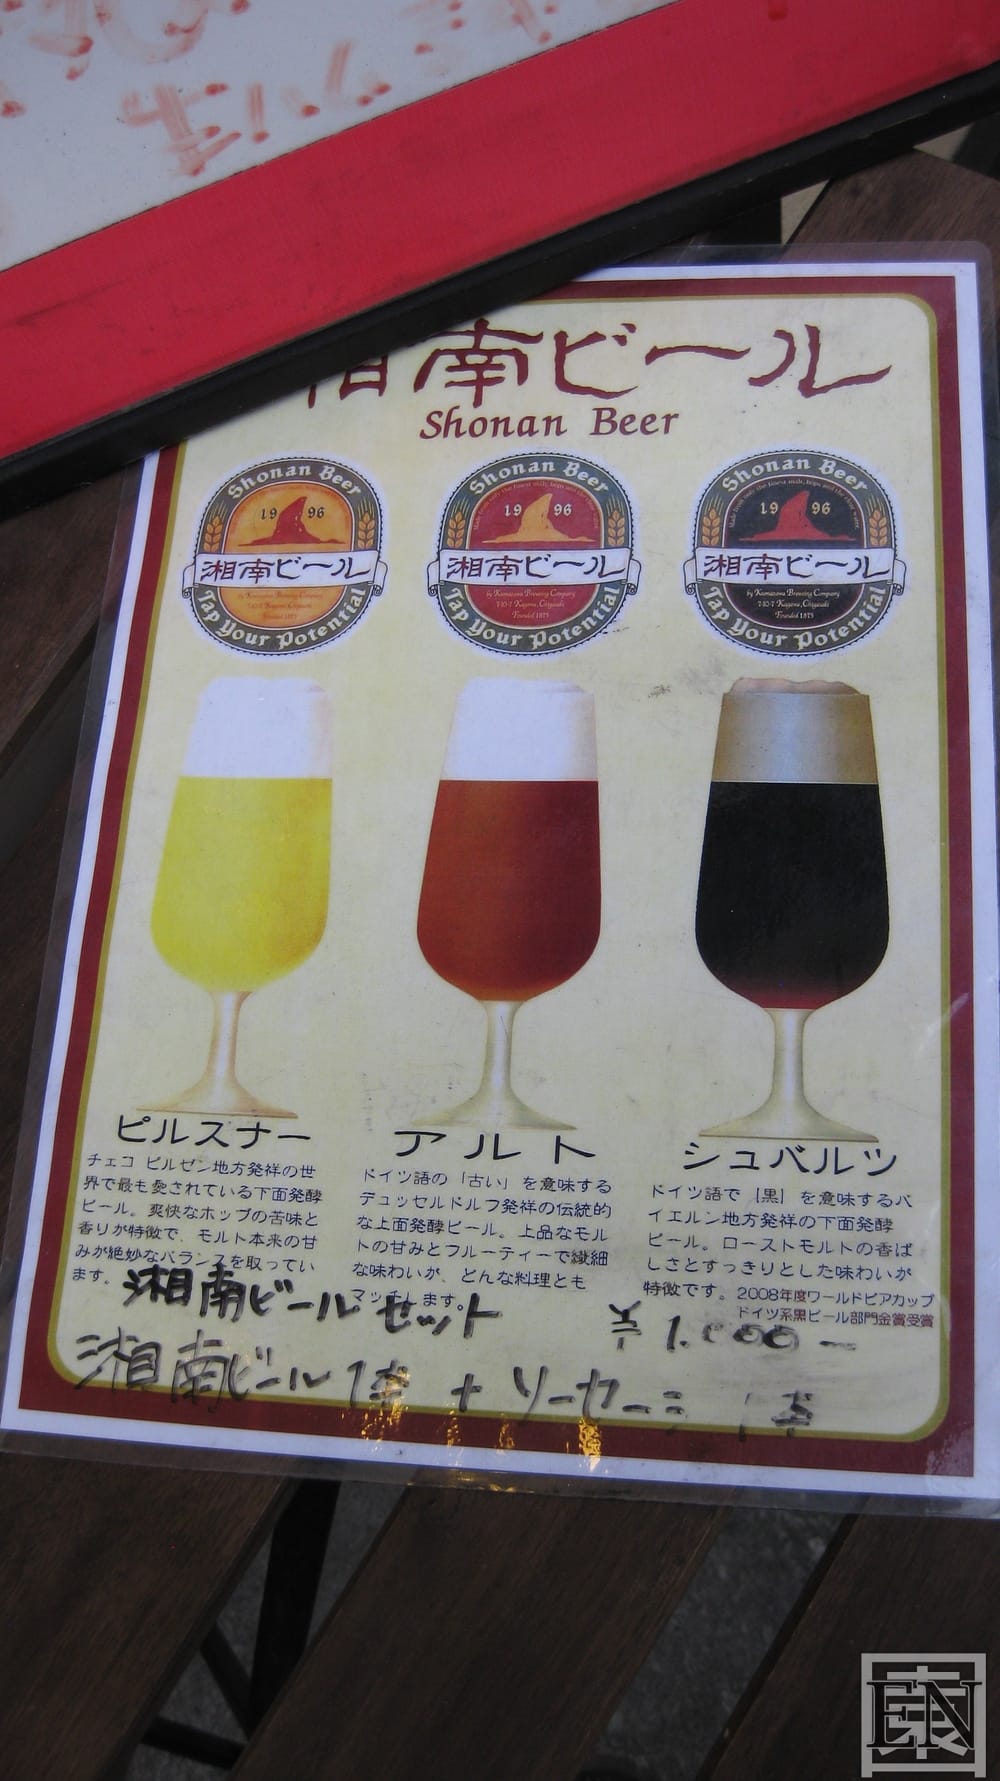 湘南ビール
Shonan Beer
Shonan Beer
19 96
湘南ビール
by Kumazawa Brewing Company
7-10-7 Kagawa, Chigasaki
Founded 1875
Tap Your Potential
Shonan Beer
Made from only the finest malt, hops and the clear water
19 96
湘南ビール
by Kumazawa Brewing Company
7-10-7 Kagawa, Chigasaki
Founded 1875
Tap Your Potential
Shonan Beer
Made from only the finest malt, hops and the clear water
19 96
湘南ビール
by Kumazawa Brewing Company
7-10-7 Kagawa, Chigasaki
Founded 1875
Tap Your Potential
ピルスナー
チェコ ピルゼン地方発祥の世
界で最も愛されている下面発酵
ビール。爽快なホップの苦味と
香りが特徴で、モルト本来の甘
みが絶妙なバランスを取ってい
ます。
アルト
ドイツ語の「古い」を意味する
デュッセルドルフ発祥の伝統的
な上面発酵ビール。上品なモル
トの甘みとフルーティーで繊細
な味わいが、どんな料理とも
マッチします。
シュバルツ
ドイツ語で「黒」を意味するバ
イエルン地方発祥の下面発酵
ビール。ローストモルトの香ば
しさとすっきりとした味わいが
特徴です。2008年度ワールドビアカップ
ドイツ系黒ビール部門金賞受賞
湘南ビールセット ¥1.000-
湘南ビール1杯 + ソーセージ1本
EN